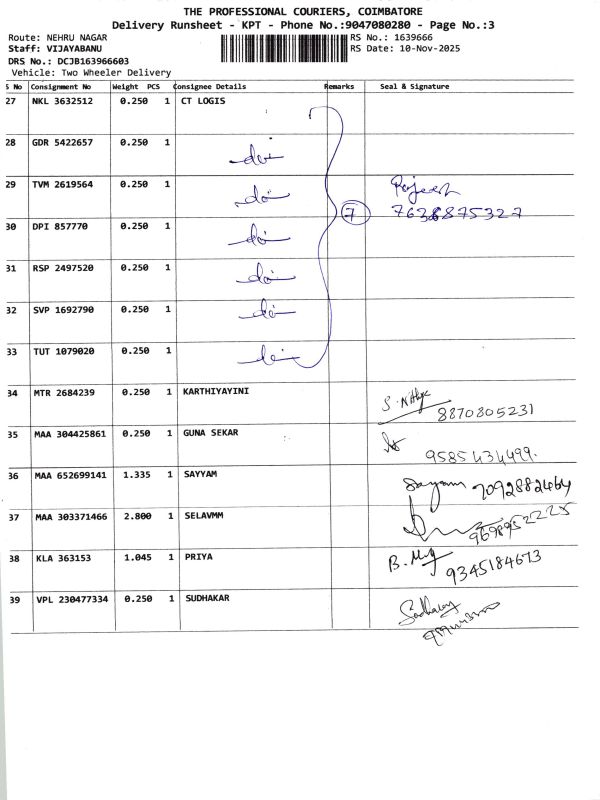 THE PROFESSIONAL COURIERS, COIMBATORE
Delivery Runsheet - KPT - Phone No.:9047080280 - Page No.:3
Route: NEHRU NAGAR RS No.: 1639666
Staff: VIJAYABANU RS Date: 10-Nov-2025
DRS No.: DCJB163966603
Vehicle: Two Wheeler Delivery
S No Consignment No Weight PCS Consignee Details Remarks Seal & Signature
27 NKL 3632512 0.250 1 CT LOGIS
28 GDR 5422657 0.250 1 -do-
29 TVM 2619564 0.250 1 -do- Rajesh
7 7638875327
30 DPI 857770 0.250 1 -do-
31 RSP 2497520 0.250 1 -do-
32 SVP 1692790 0.250 1 -do-
33 TUT 1079020 0.250 1 -do-
34 MTR 2684239 0.250 1 KARTHIYAYINI
8870805231
35 MAA 304425861 0.250 1 GUNA SEKAR
9585434499.
36 MAA 652699141 1.335 1 SAYYAM Sayyam 7092882464
37 MAA 303371466 2.800 1 SELAVMM
9698952225
38 KLA 363153 1.045 1 PRIYA
9345184673
39 VPL 230477334 0.250 1 SUDHAKAR Sudhakar